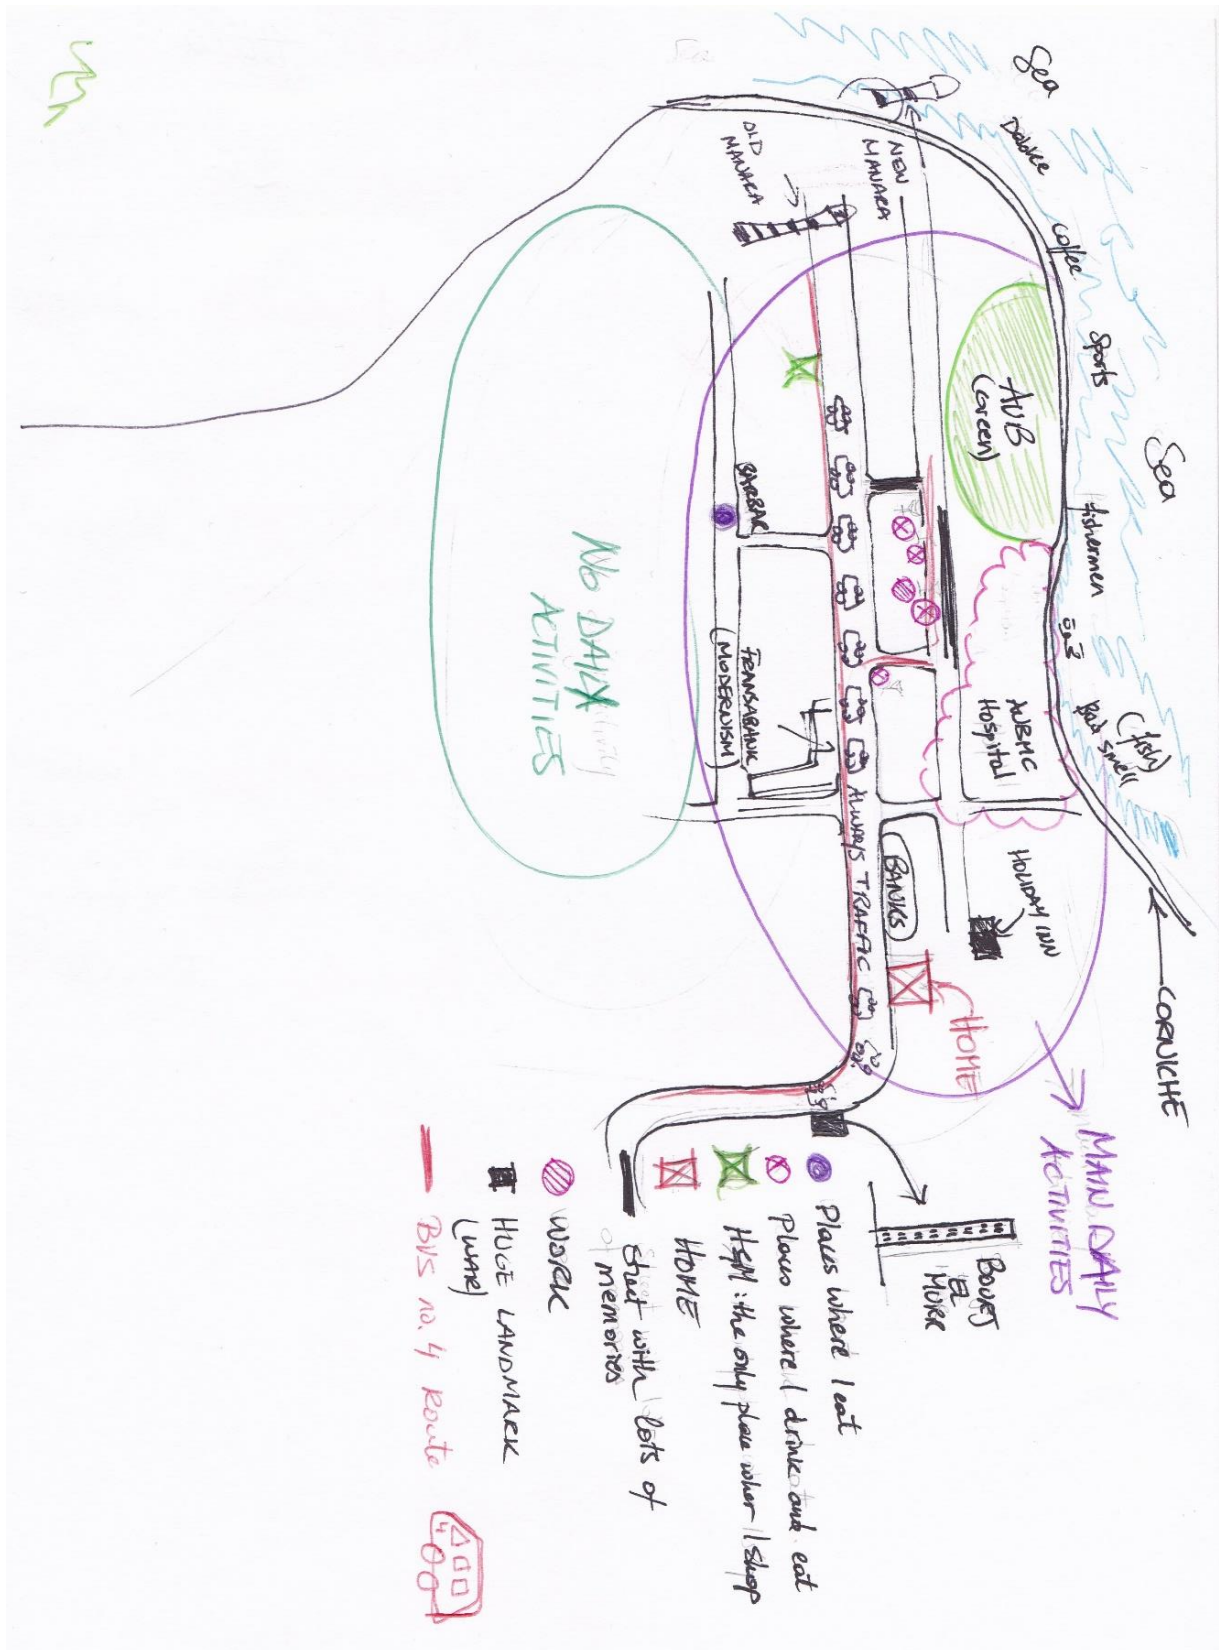 Sea
Dabke
Coffee
Sports
Sea
fishermen
(fish)
Bad smell
CORNICHE
NEW
MANARA
OLD
MANARA
AUB
(Green)
AUBMC
Hospital
HOLIDAY INN
BANKS
HOME
MAIN DAILY
ACTIVITIES
ALWAYS TRAFFIC
BARBAR
TRANSABANK
(MODERNISM)
NO DAILY
ACTIVITIES
BOURJ
EL
MURR
Places where I eat
Places where I drink and eat
H&M: the only place wher I shop
HOME
Street with lots of
memories
WORK
HUGE LANDMARK
(WAR)
BUS no. 4 Route
4